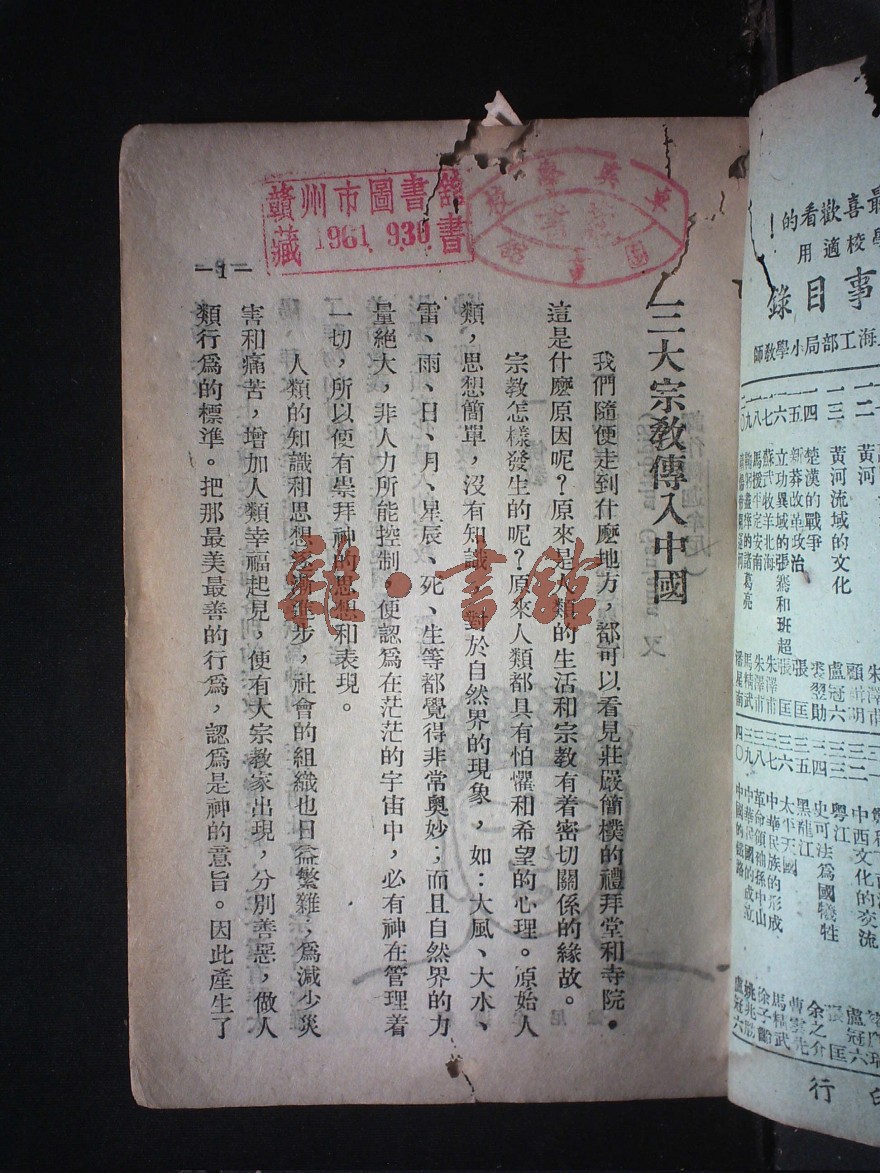 三大宗教傳入中國
我們隨便走到什麼地方，都可以看見莊嚴簡樸的禮拜堂和寺院．
這是什麼原因呢？原來是人類的生活和宗教有着密切關係的緣故。
宗教怎樣發生的呢？原來人類都具有怕懼和希望的心理。原始人
類，思想簡單，沒有知識，對於自然界的現象，如：大風、大水、
雷、雨、日、月、星辰、死、生等都覺得非常奧妙；而且自然界的力
量絕大，非人力所能控制，便認爲在茫茫的宇宙中，必有神在管理着
一切，所以便有崇拜神的思想和表現。
人類的知識和思想逐漸進步，社會的組織也日益繁雜；爲減少災
害和痛苦，增加人類幸福起見，便有大宗教家出現，分別善惡，做人
類行爲的標準。把那最美最善的行爲，認爲是神的意旨。因此產生了
—1—
贛州市圖書館
藏 1961 930 書
雜·書館
最喜歡看的！
學校適用
事目錄
海工部局小學教師
黃河
三 黃河流域的文化 盧冠六
四 楚漢的戰爭 裘翌勛
五 新莽改革政治 張匡
六 立功異域的張騫和班超 張匡
七 蘇武牧羊北海 朱澤市
八 馬援平定安南 朱澤市
九 鞠躬盡瘁的諸葛亮 馬精武
潘星南
中西文化的交流
三三 粵江
三四 史可法爲國犧牲 余之介
三五 黑龍江
三六 太平天國
三七 中華民族的形成 馬精武
三八 革命領袖孫中山 徐子齡
三九 中華民國的成立
四〇 中國的鐵路 盧冠六
盧冠六
張匡
印行